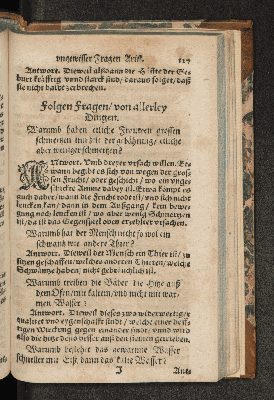 vngewisser Fragen Arist. 127
Antwort. Dieweil alßdann die Häffte der Ge-
burt kräfftig vnnd starck sind/ daraus folget/ daß
sie nicht baldt zerbrechen.
Folgen Fragen/ von allerley
Dingen.
Warumb haben etliche Frauwen grossen
schmertzen in der gebährung/ etliche
aber weniger schmertzen?
ANtwort. Vmb dreyer vrsach willen. Et-
wann begibt es sich von wegen der gros-
sen Frucht/ oder geschicht/ wo ein vnge-
schickte Amme dabey ist. Etwa kompt es
auch daher/ wann die Frucht todt ist/ vnd sich nicht
lencken kan/ dann in dem Außgang/ kein beweg-
ung noch lencken ist/ wo aber wenig Schmertzen
ist/ da ist das Gegenspiel oben erzehlter vrsachen.
Warumb hat der Mensch nicht so wol ein
schwantz wie andere Thier?
Antwort. Dieweil der Menschen Thier ist/ zu
sitzen geschaffen/ welches anderen Thieren/ welche
Schwäntze haben/ nicht gebräuchlich ist.
Warumb treiben die Bäder die Hitze auß
dem Ofen/ mit kaltem/ vnd nicht mit war-
men Wasser?
Antwort. Dieweil dieses zwo widerwertige
qualitet vnd eygenschafft sind/ welche einer hefft-
igen Wirckung gegen einander sind/ vnnd wird
also die hitz desto besser auß den steinen getrieben.
Warumb bezeucht das gewärmte Wasser
schneller mit Eiß/ dann das kalte Wasser?
J Ant-